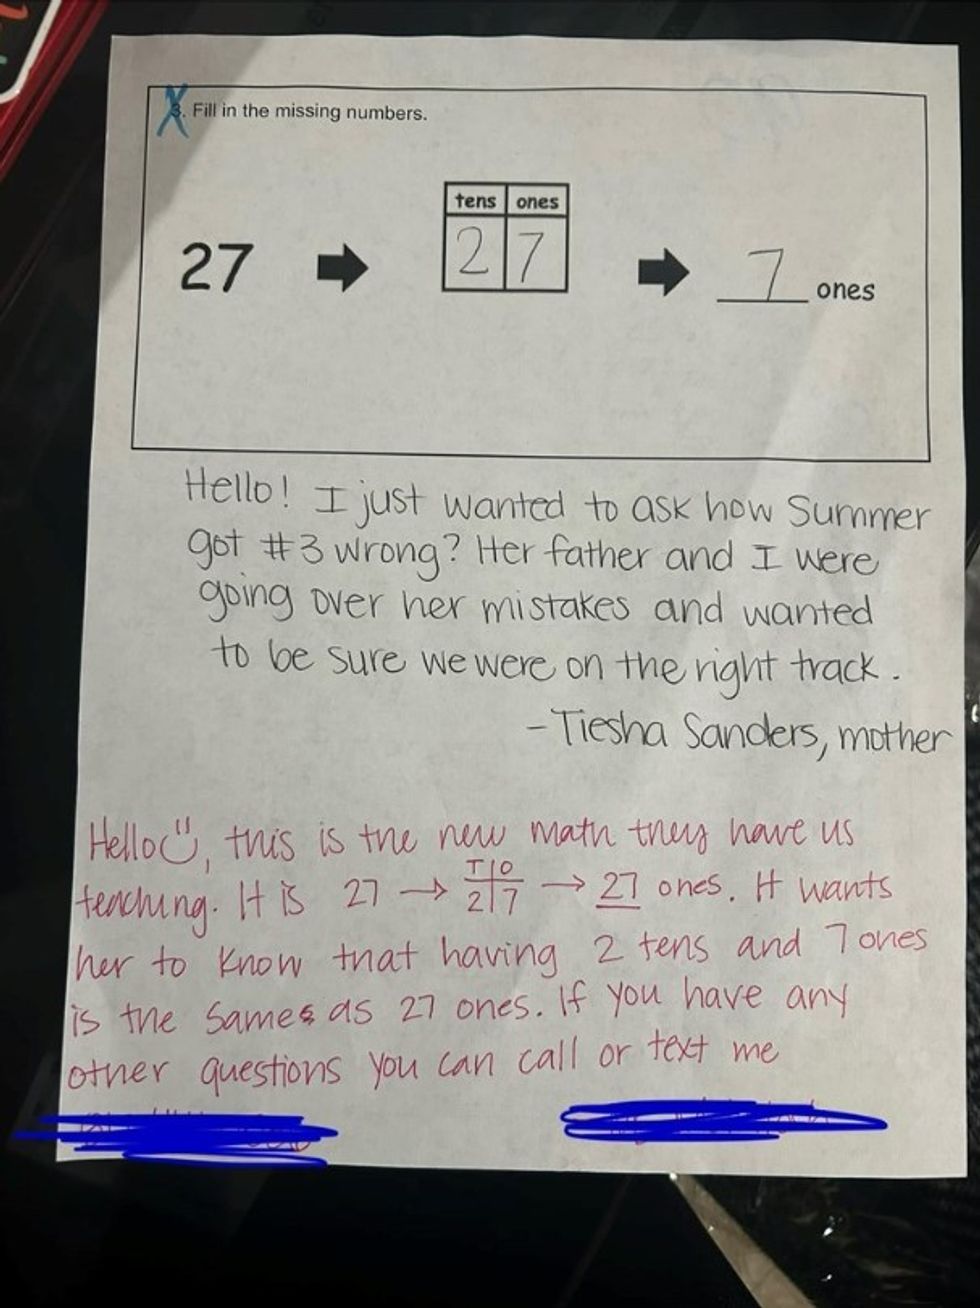 3. Fill in the missing numbers.
tens ones
27 → 2 7 → 7 ones
Hello! I just wanted to ask how Summer
got #3 wrong? Her father and I were
going over her mistakes and wanted
to be sure we were on the right track.
-Tiesha Sanders, mother
Hello, this is the new math they have us
T O
teaching. It is 27 → 2 7 → 27 ones. It wants
her to know that having 2 tens and 7 ones
is the same as 27 ones. If you have any
other questions you can call or text me